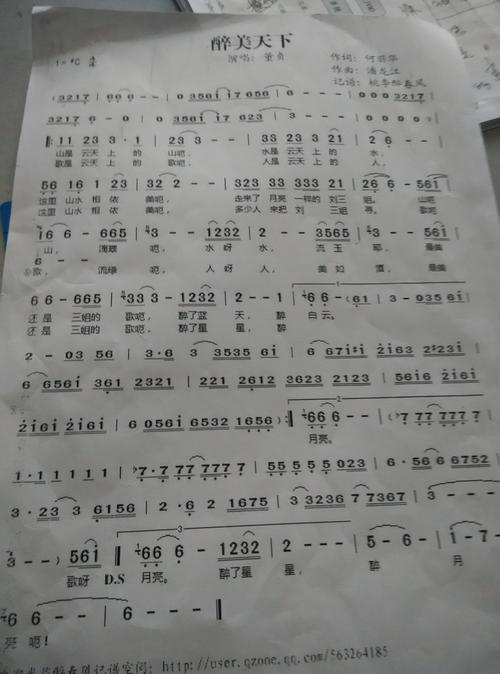 醉美天下
演唱：董贞
作词：何丽华
1=♯C
作曲：潘龙江
记谱：桃李醉春风
(3217 | 6 6 6 - | 0 3561 17656 | 6 - - | 0 0 0 3217 |
6 6 6 0 | 0 3561 17623 | 3 - - | 0 0 0 0 )
‖: 11 23 3·1 | 23 3 - - | 33 23 3 21 | 2 6 - - |
山是 云天 上 的 山呃， 水是 云天 上 的 水，
歌是 云天 上 的 歌呃， 人是 云天 上 的 人，
56 16 1 23 | 32 2 - - | 323 33 333 31 | 26 6 - 561 |
这里 山水 相 依 美呃， 走来了 月亮 一样的 刘三 姐。 山呃
这里 山水 相 依 美呃， 多少人 来把 刘 三姐 寻。 歌呃
16 6 - 665 | 3 - - 1232 | 2 - - 3565 | 3 - - 561 |
山， 流绿 呃， 水呀 水， 流玉 耶， 最美
6 - -
歌， 流绿 呃， 人呀 人， 美如 酒， 最美
6 6 - 665 | 33 3 - 1232 | 2 - - 1 | 66 - (61 | 3 - 0356 1 |
还 是 三姐的 歌呃， 醉了蓝 天， 醉 白云。
还 是 三姐的 歌呃， 醉了星 星， 醉
2 - 03 56 | 3·6 3 3535 61 | 6 671 2163 2231 |
6 6561 361 2321 | 221 2612 3623 2123 | 5616 2161 |
2161 2161 2161 | 6 0561 6532 1656 ) :‖ 66 6 - - | (7 77 7777 7 |
月亮。
1·1 1 1 1 1 | 7·7 77 777 7 | 55 55 5 5 023 | 6·56 6 6752 |
3·23 3 6156 | 2·6 2 1675 | 3 3236 7 7367 | 3 - - - |
3 - - ) 561 ‖ 66 6 - 1232 | 2 - - - | 5 - 6 - | 1 - 7 -
歌呀 D.S 月亮。 醉了星 星， 醉 月
6 6 - - - | 6 - - - ‖
亮 呃！
记谱空间：http://user.qzone.qq.com/563264185